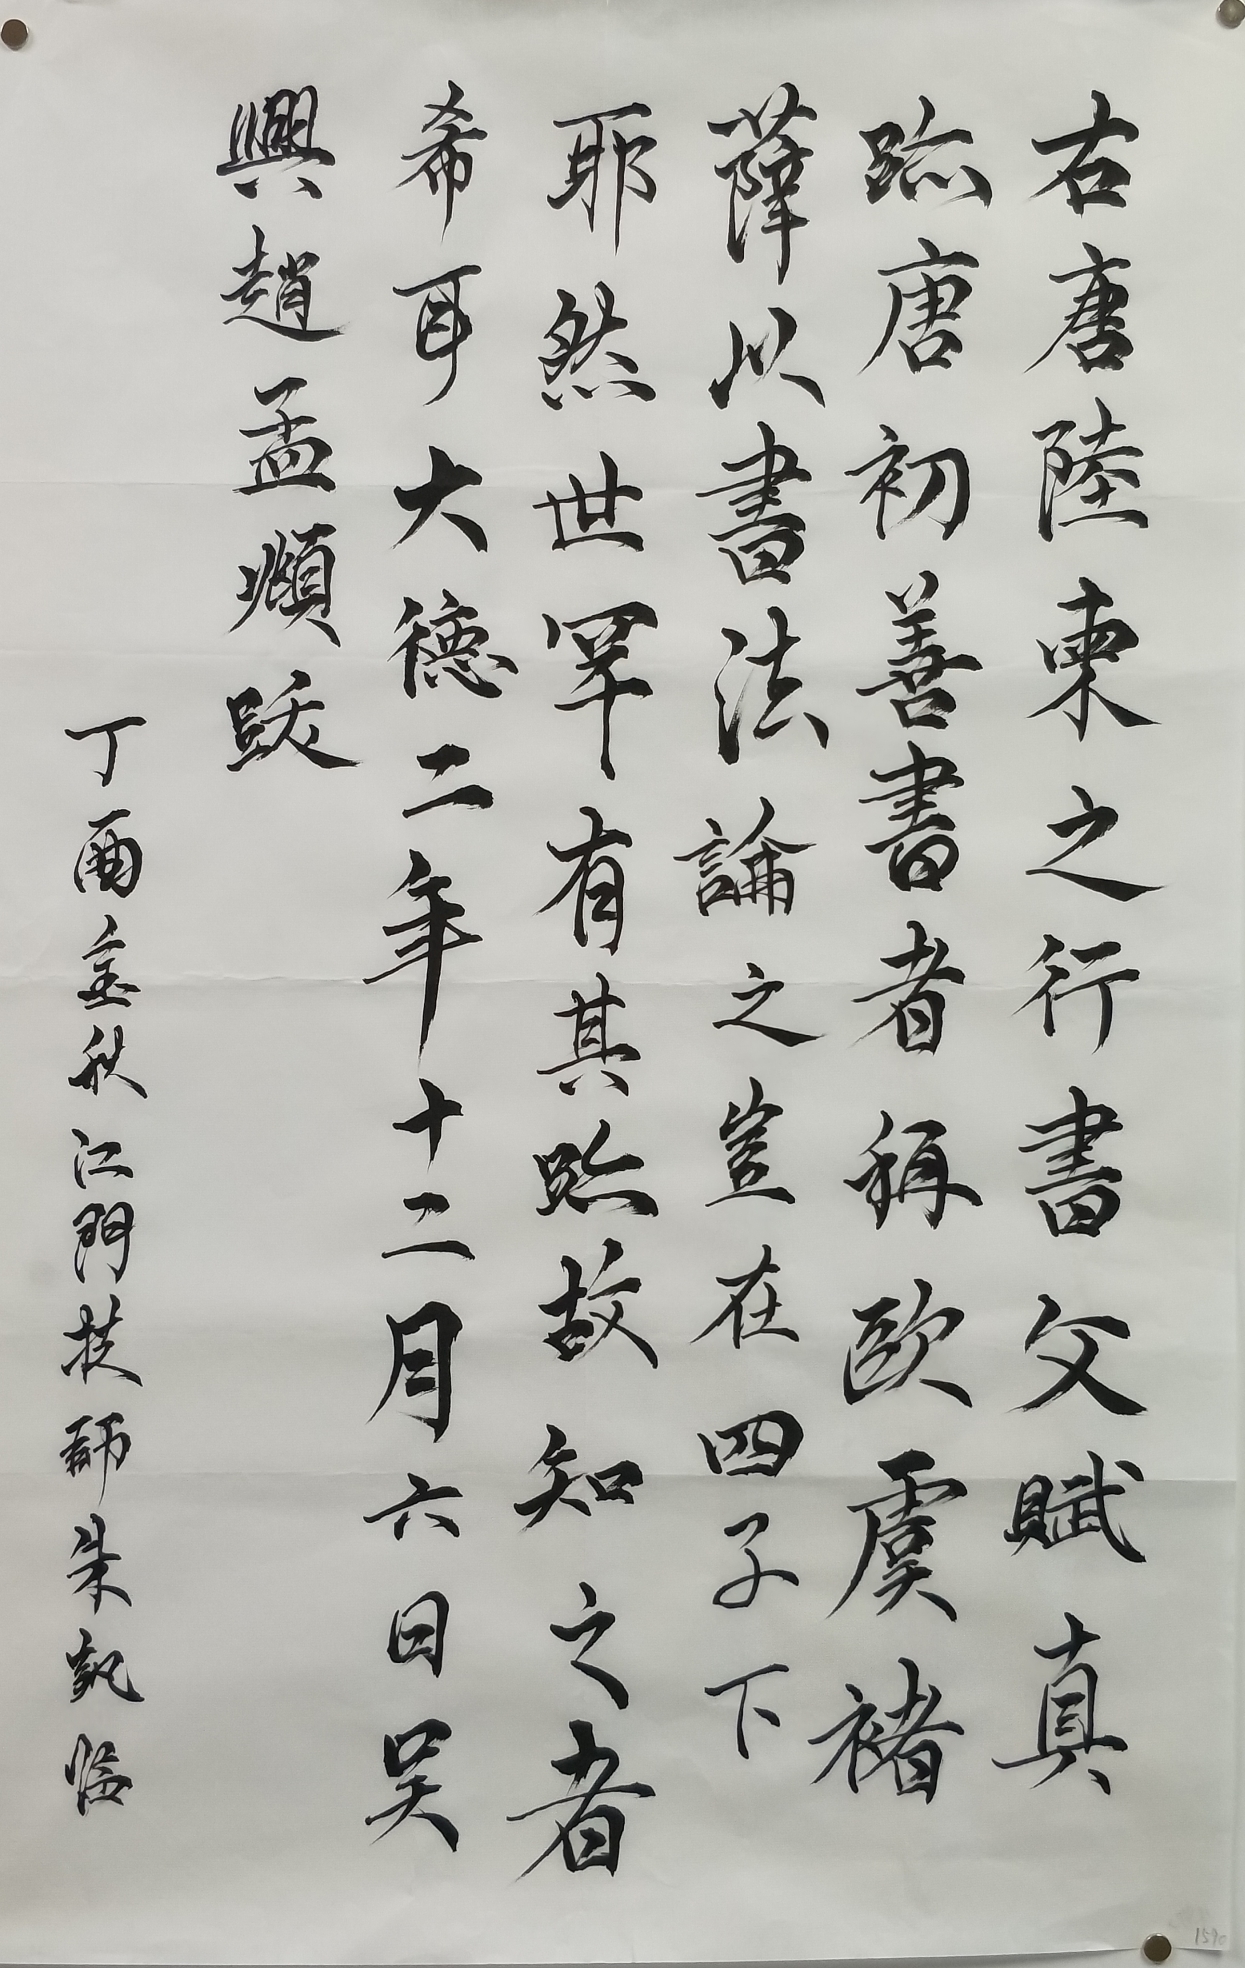 右唐陸柬之行書文賦真
跡唐初善書者稱歐虞褚
薛以書法論之豈在四子下
耶然世罕有其跡故知之者
希耳大德二年十二月六日吴
興趙孟頫跋
丁酉金秋江門技師朱凱临
1590